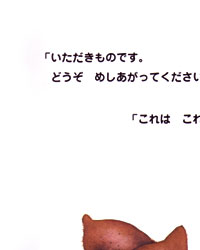 「いただきものです。
どうぞ　めしあがってください
「これは　これ